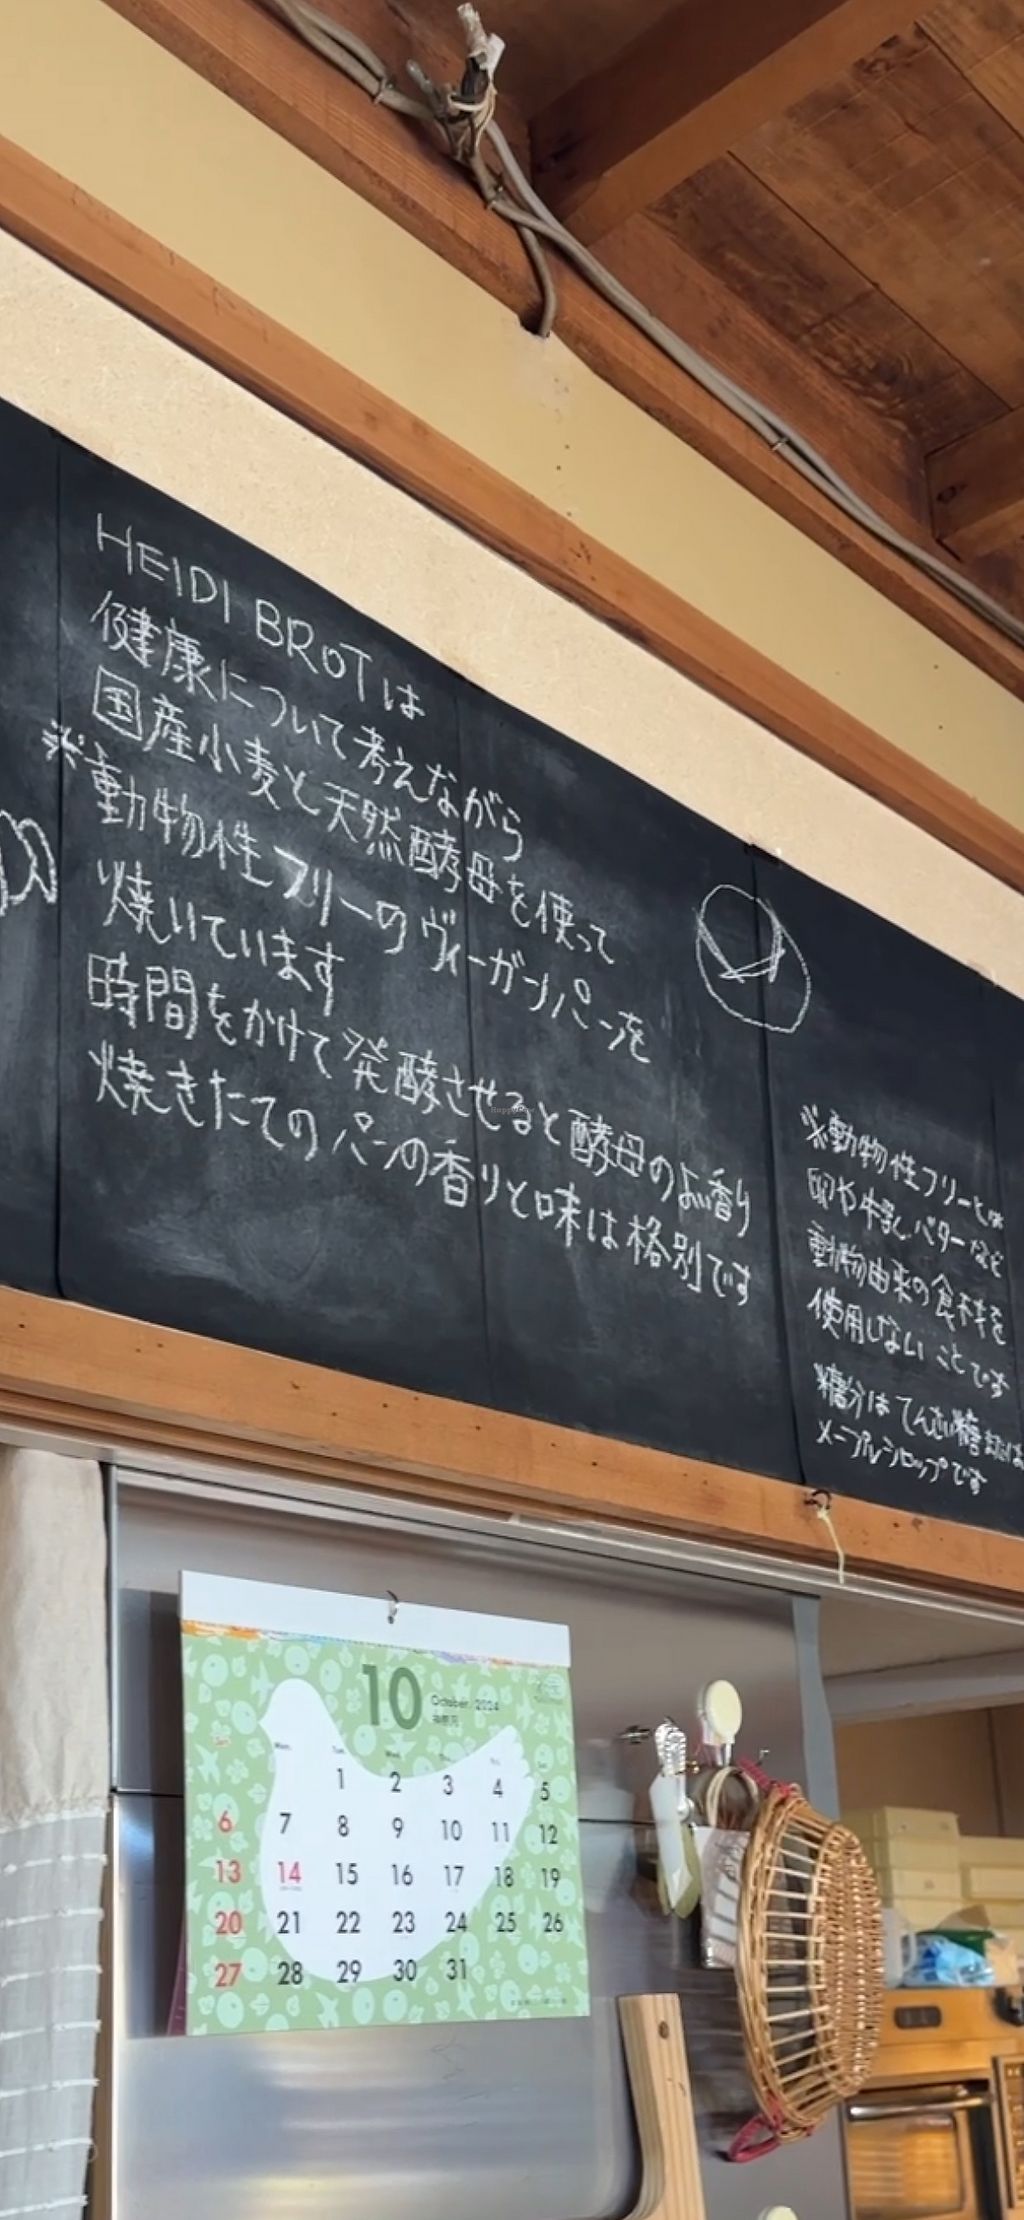 HEIDI BROT は
健康について考えながら
国産小麦と天然酵母を使って
※動物性フリーのヴィーガンパンを
焼いています
時間をかけて発酵させると酵母のよい香り
焼きたてのパンの香りと味は格別です
※動物性フリーとは
卵や牛乳バターなど
動物由来の食材を
使用しないことです
糖分はてんさい糖または
メープルシロップです
10
October. 2024
神無月
Sun. Mon. Tue. Wed. Thu. Fri. Sat.
1 2 3 4 5
6 7 8 9 10 11 12
13 14 15 16 17 18 19
20 21 22 23 24 25 26
27 28 29 30 31